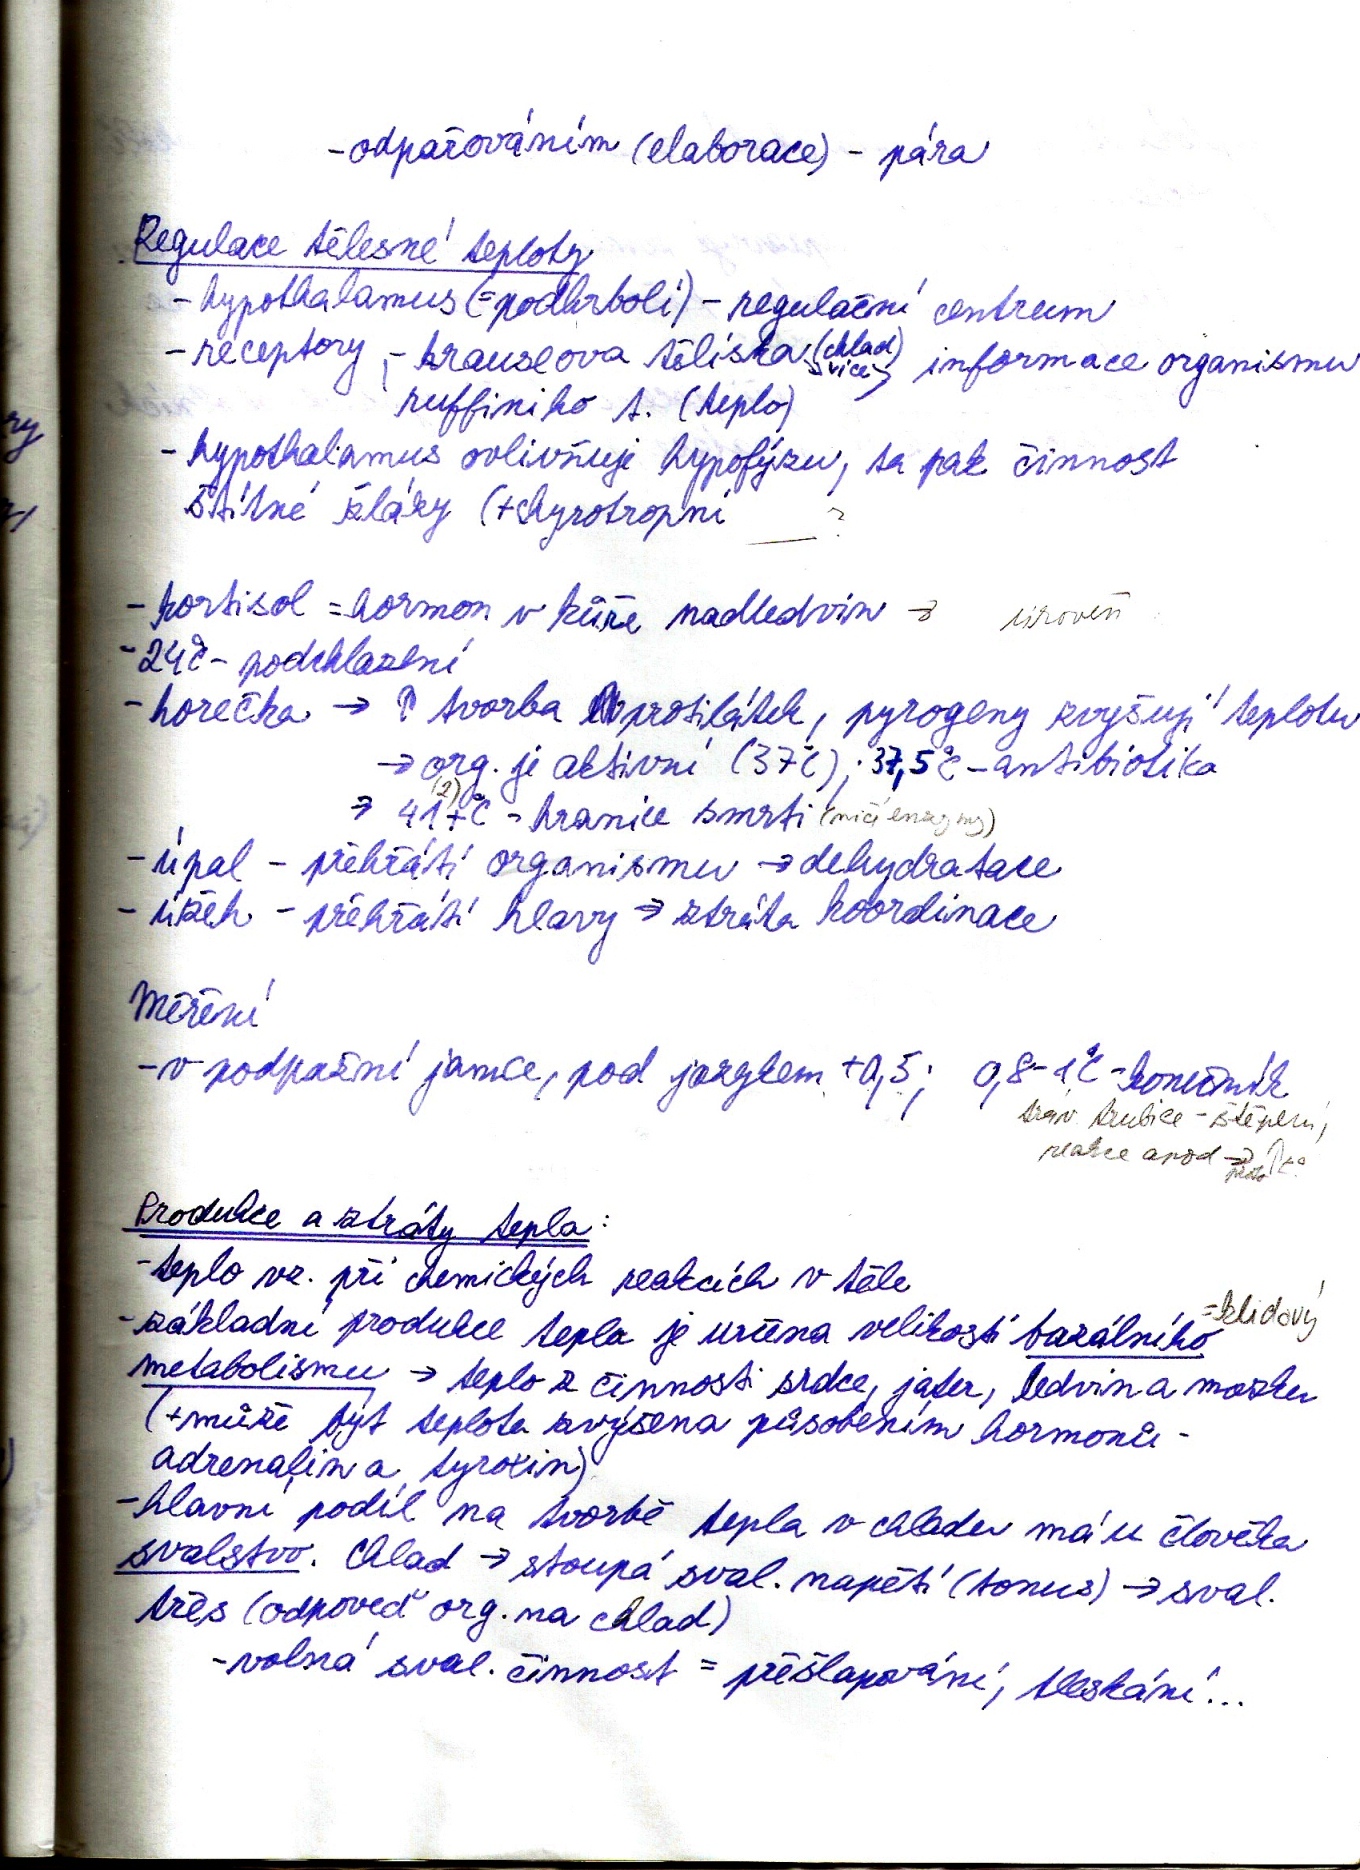 - odpařováním (elaborace) - pára
Regulace tělesné teploty
- hypothalamus (= podhrbolí) - regulační centrum
- receptory - krauseova tělíska (chlad) informace organismu
→ více
ruffiniho t. (teplo)
- hypothalamus ovlivňuje hypofýzu, ta pak činnost
štítné žlázy (+thyrotropní ___ ?
- kortisol = hormon v kůře nadledvin → úroveň
- 24°C - podchlazení
- horečka → ↑ tvorba protilátek, pyrogeny zvyšují teplotu
→ org. je aktivní (37°C), 37,5°C - antibiotika
(2)
→ 41+°C - hranice smrti (ničí enzymy)
- úpal - přehřátí organismu → dehydratace
- úžeh - přehřátí hlavy → ztráta koordinace
Měření
- v podpažní jamce, pod jazykem +0,5; 0,8-1°C - konečník
tráv. trubice - štěpení,
reakce apod → proto ↑t°
Produkce a ztráty tepla:
- teplo vz. při chemických reakcích v těle
- základní produkce tepla je určena velikostí bazálního =klidový
metabolismu → teplo z činnosti srdce, jater, ledvin a mozku
(+může být teplota zvýšena působením hormonů -
adrenalin a tyroxin)
- hlavní podíl na tvorbě tepla v chladu má u člověka
svalstvo. Chlad → stoupá sval. napětí (tonus) → sval.
třes (odpověď org. na chlad)
- volná sval. činnost = přešlapování, tleskání...